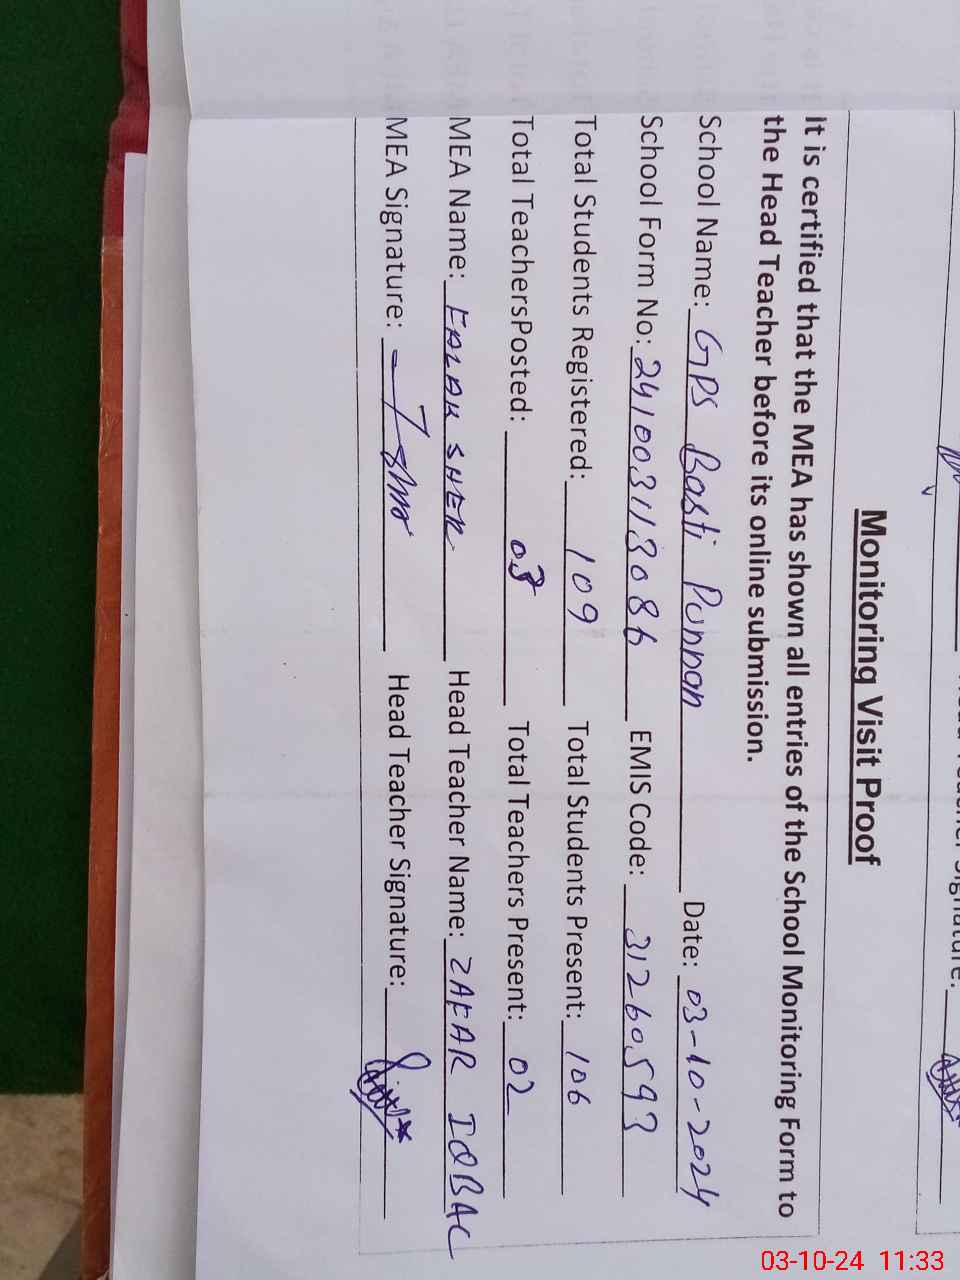 Monitoring Visit Proof
It is certified that the MEA has shown all entries of the School Monitoring Form to
the Head Teacher before its online submission.
School Name: GPS Basti Punnan Date: 03-10-2024
School Form No: 241003113086 EMIS Code: 31260593
Total Students Registered: 109 Total Students Present: 106
Total TeachersPosted: 03 Total Teachers Present: 02
MEA Name: FALAK SHER Head Teacher Name: ZAFAR IQBAL
MEA Signature: Head Teacher Signature:
03-10-24 11:33